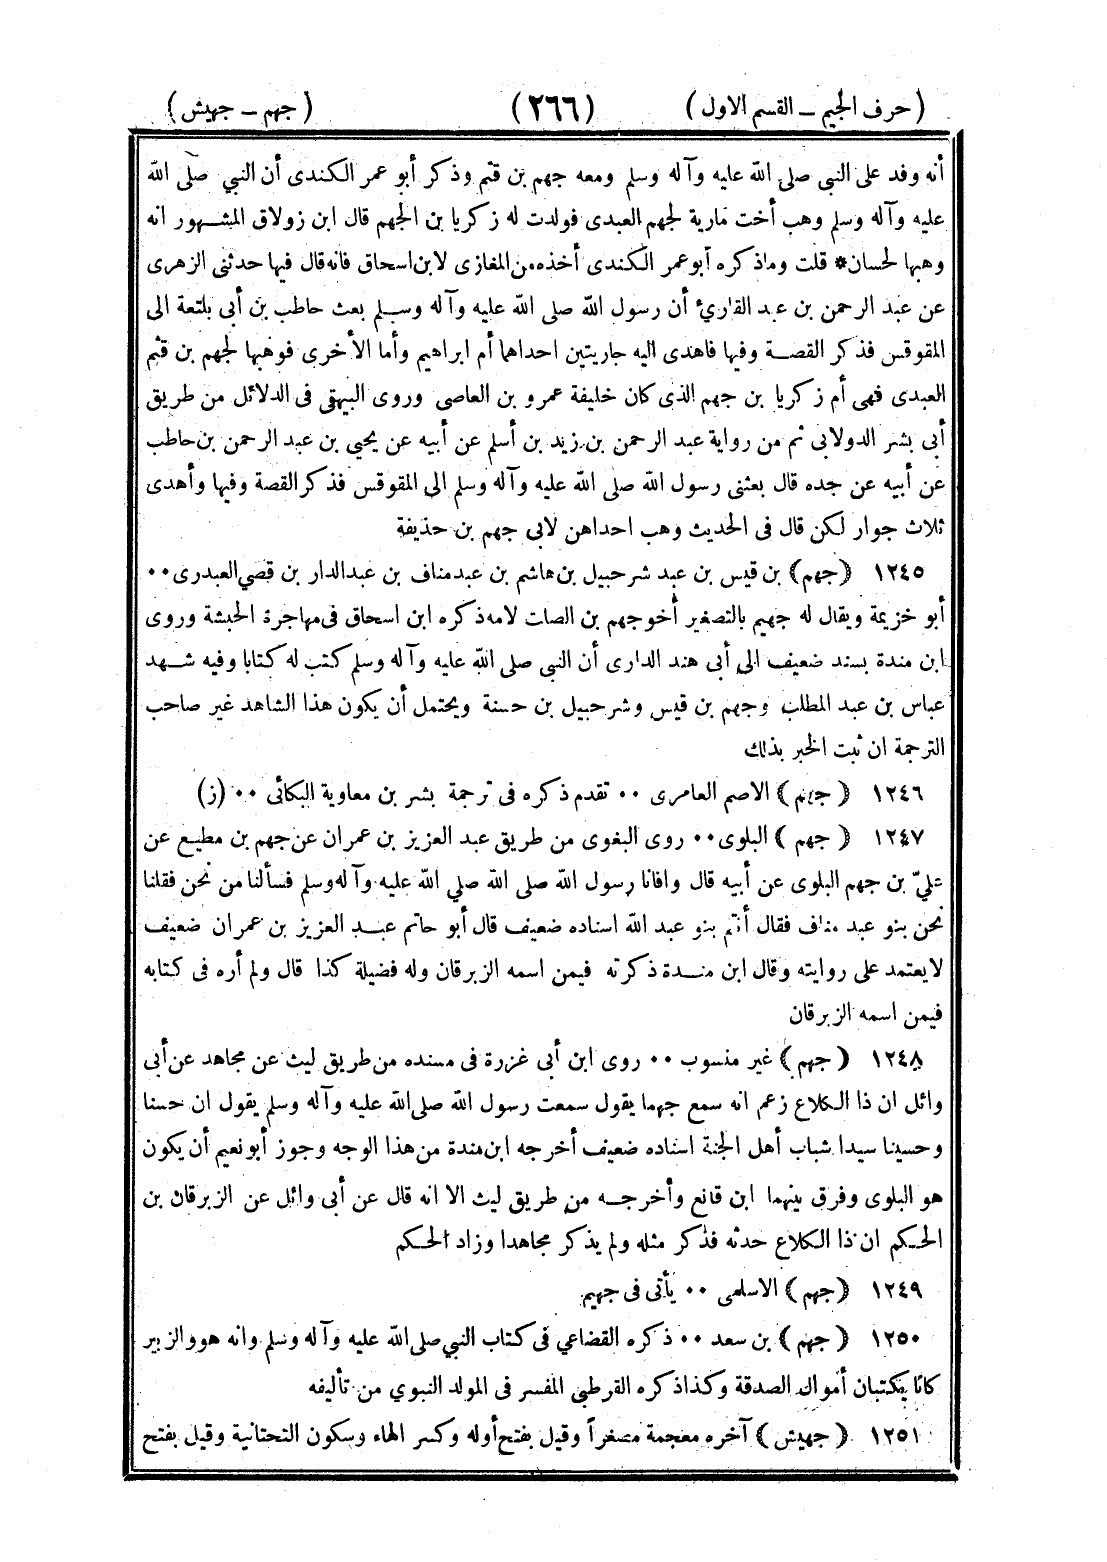 ( حرف الجيم ــ القسم الاول ) (٢٦٦) ( جهم ــ جهيش )
أنه وفد على النبى صلى الله عليه وآله وسلم ومعه جهم بن قثم وذكر أبو عمر الكندى أن النبي صلى الله
عليه وآله وسلم وهب أخت مارية لجهم العبدى فولدت له زكريا بن الجهم قال ابن زولاق المشهور انه
وهبها لحسان* قلت وماذكره أبوعمر الكندى أخذه من المغازى لابن اسحاق فانه قال فيها حدثنى الزهرى
عن عبد الرحمن بن عبد القارئ أن رسول الله صلى الله عليه وآله وسلم بعث حاطب بن أبى بلتعة الى
المقوقس فذكر القصة وفيها فاهدى اليه جاريتين احداهما أم ابراهيم وأما الأخرى فوهبها لجهم بن قثم
العبدى فهى أم زكريا بن جهم الذى كان خليفة عمرو بن العاصى وروى البيهقى فى الدلائل من طريق
أبى بشر الدولابى ثم من رواية عبد الرحمن بن زيد بن أسلم عن أبيه عن يحيى بن عبد الرحمن بن حاطب
عن أبيه عن جده قال بعثنى رسول الله صلى الله عليه وآله وسلم الى المقوقس فذكر القصة وفيها وأهدى
ثلاث جوار لكن قال فى الحديث وهب احداهن لابى جهم بن حذيفة
١٢٤٥ (جهم) بن قيس بن عبد شرحبيل بن هاشم بن عبد مناف بن عبدالدار بن قصي العبدرى٠٠
أبو خزيمة ويقال له جهيم بالتصغير أخوجهم بن الصات لامه ذكره ابن اسحاق فى مهاجرة الحبشة وروى
ابن مندة بسند ضعيف الى أبى هند الدارى أن النبى صلى الله عليه وآله وسلم كتب له كتابا وفيه شهد
عباس بن عبد المطلب وجهم بن قيس وشرحبيل بن حسنة ويحتمل أن يكون هذا الشاهد غير صاحب
الترجمة ان ثبت الخبر بذلك
١٢٤٦ ( جهم ) الاصم العامرى ٠٠ تقدم ذكره فى ترجمة بشر بن معاوية البكائى ٠٠ (ز)
١٢٤٧ ( جهم ) البلوى٠٠ روى البغوى من طريق عبد العزيز بن عمران عن جهم بن مطيع عن
علىّ بن جهم البلوى عن أبيه قال وافانا رسول الله صلى الله صلي الله عليه وآله وسلم فسألنا من نحن فقلنا
نحن بنو عبد مناف فقال أنتم بنو عبد الله اسناده ضعيف قال أبو حاتم عبد العزيز بن عمران ضعيف
لايعتمد على روايته وقال ابن مندة ذكرته فيمن اسمه الزبرقان وله فضيلة كذا قال ولم أره فى كتابه
فيمن اسمه الزبرقان
١٢٤٨ ( جهم ) غير منسوب ٠٠ روى ابن أبى غزرة فى مسنده من طريق ليث عن مجاهد عن أبى
وائل ان ذا الكلاع زعم انه سمع جهما يقول سمعت رسول الله صلى الله عليه وآله وسلم يقول ان حسنا
وحسينا سيدا شباب أهل الجنة اسناده ضعيف أخرجه ابن مندة من هذا الوجه وجوز أبونعيم أن يكون
هو البلوى وفرق بينهما ابن قانع وأخرجه من طريق ليث الا انه قال عن أبى وائل عن الزبرقان بن
الحكم ان ذا الكلاع حدثه فذكر مثله ولم يذكر مجاهدا وزاد الحكم
١٢٤٩ ( جهم ) الاسلمى ٠٠ يأتى فى جهيم
١٢٥٠ ( جهم ) بن سعد ٠٠ ذكره القضاعي فى كتاب النبي صلى الله عليه وآله وسلم وانه هو والزبير
كانا يكتبان أموال الصدقة وكذا ذكره القرطبى المفسر فى المولد النبوي من تأليفه
١٢٥١ ( جهيش ) آخره معجمة مصغراً وقيل بفتح أوله وكسر الهاء وسكون التحتانية وقيل بفتح